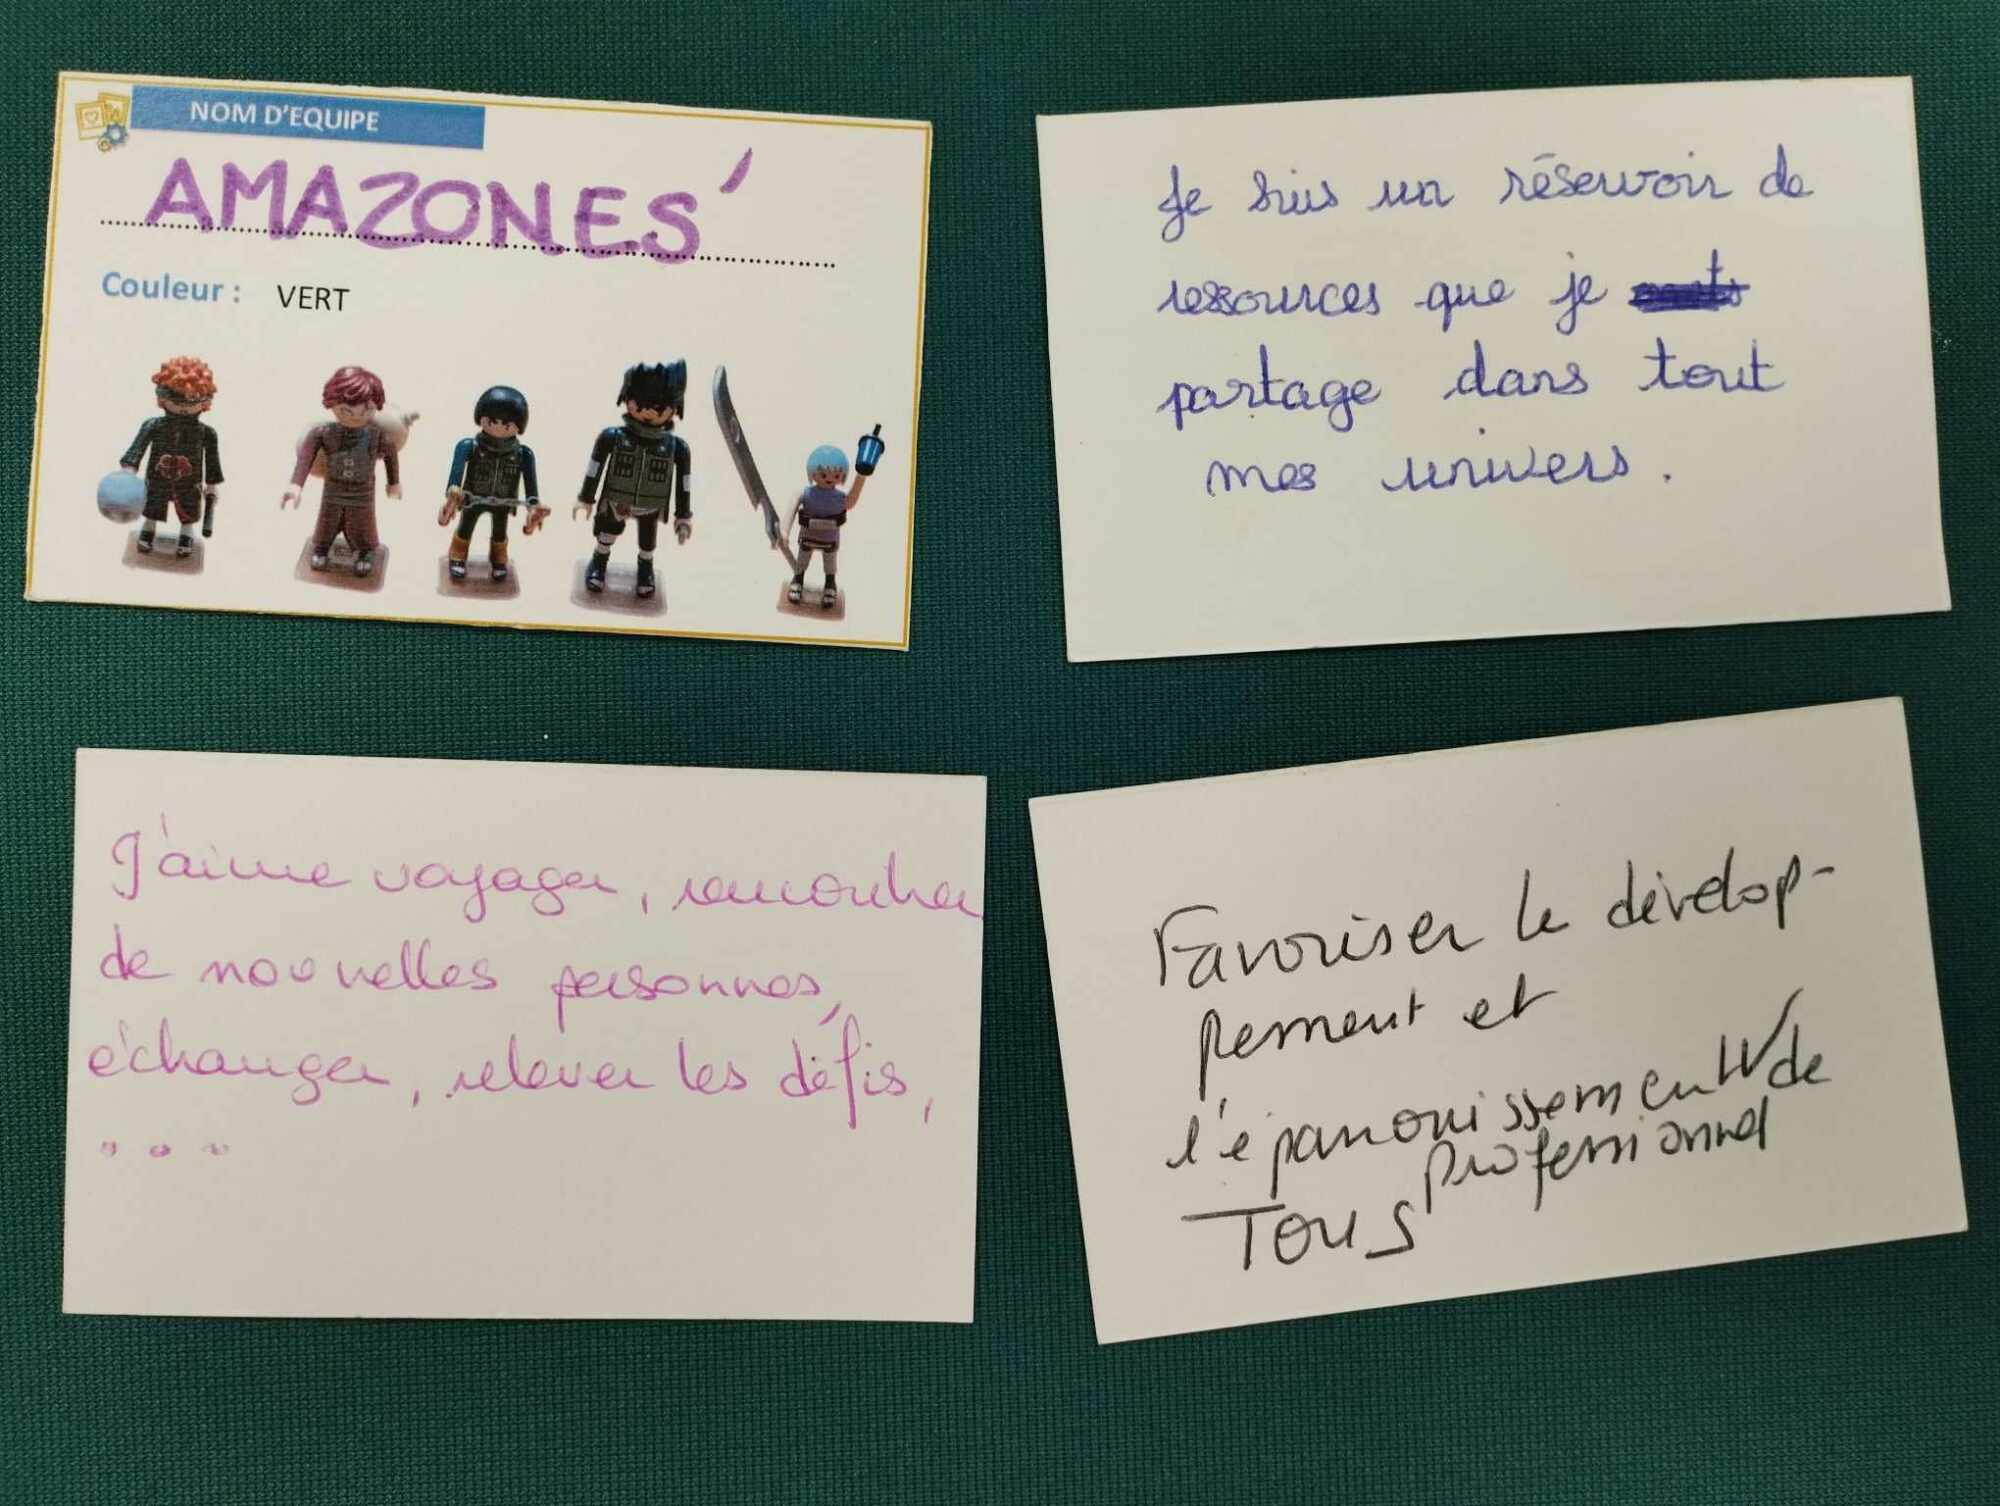 NOM D'EQUIPE
AMAZONES'
Couleur : VERT
Je suis un réservoir de
ressources que je
partage dans tout
mes univers.
J'aime voyager, rencontrer
de nouvelles personnes,
échanger, relever les défis,
...
Favoriser le dévelop-
pement et
l'épanouissement de
professionnel
TOUS